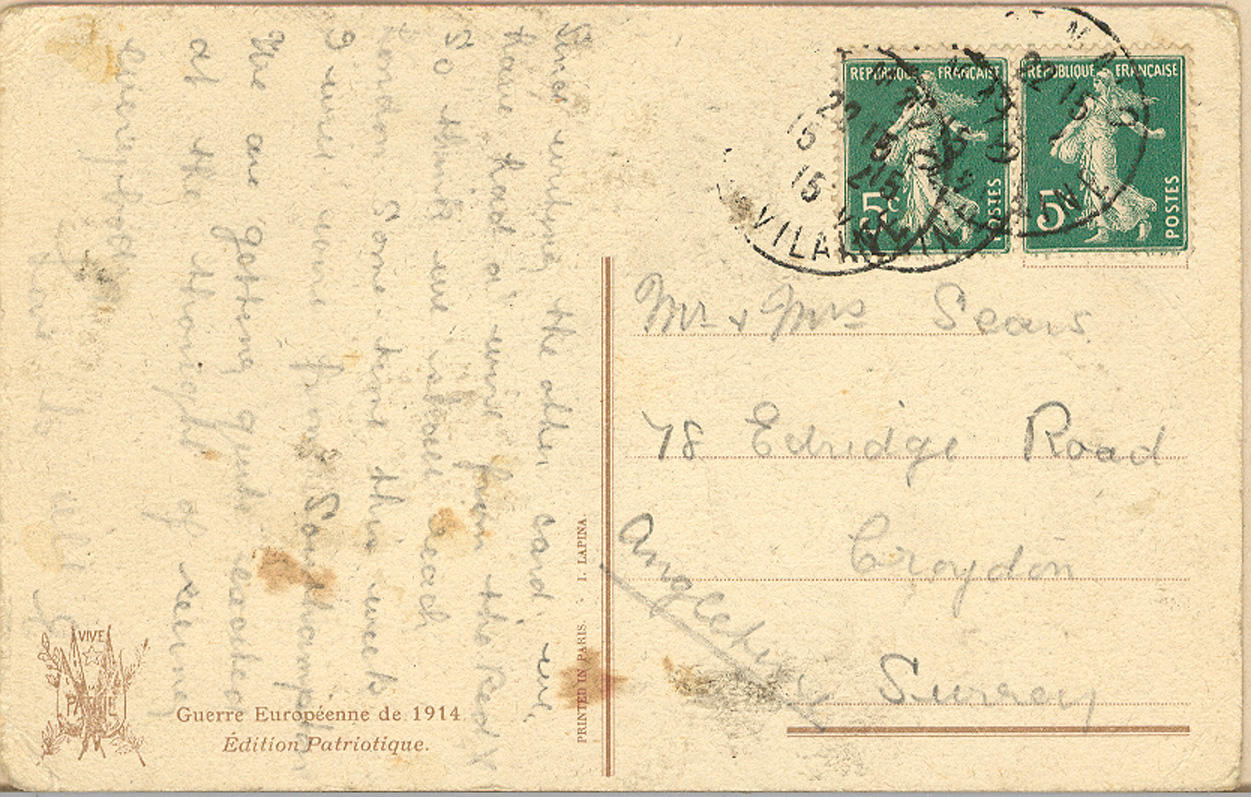 Since writing the other card we
have had a wire from the Red X
So think we shall reach
London Some time this week
I will wire from Southampton
We are getting quite excited
at the thought of seeing
everybody
love to
REPUBLIQUE FRANÇAISE
5c
POSTES
REPUBLIQUE FRANÇAISE
5c
POSTES
VILAINE
Mr & Mrs Sears
78 Edridge Road
Croydon
Surrey
Angleterre
PRINTED IN PARIS. I. LAPINA.
VIVE
PATRIE
Guerre Européenne de 1914
Édition Patriotique.